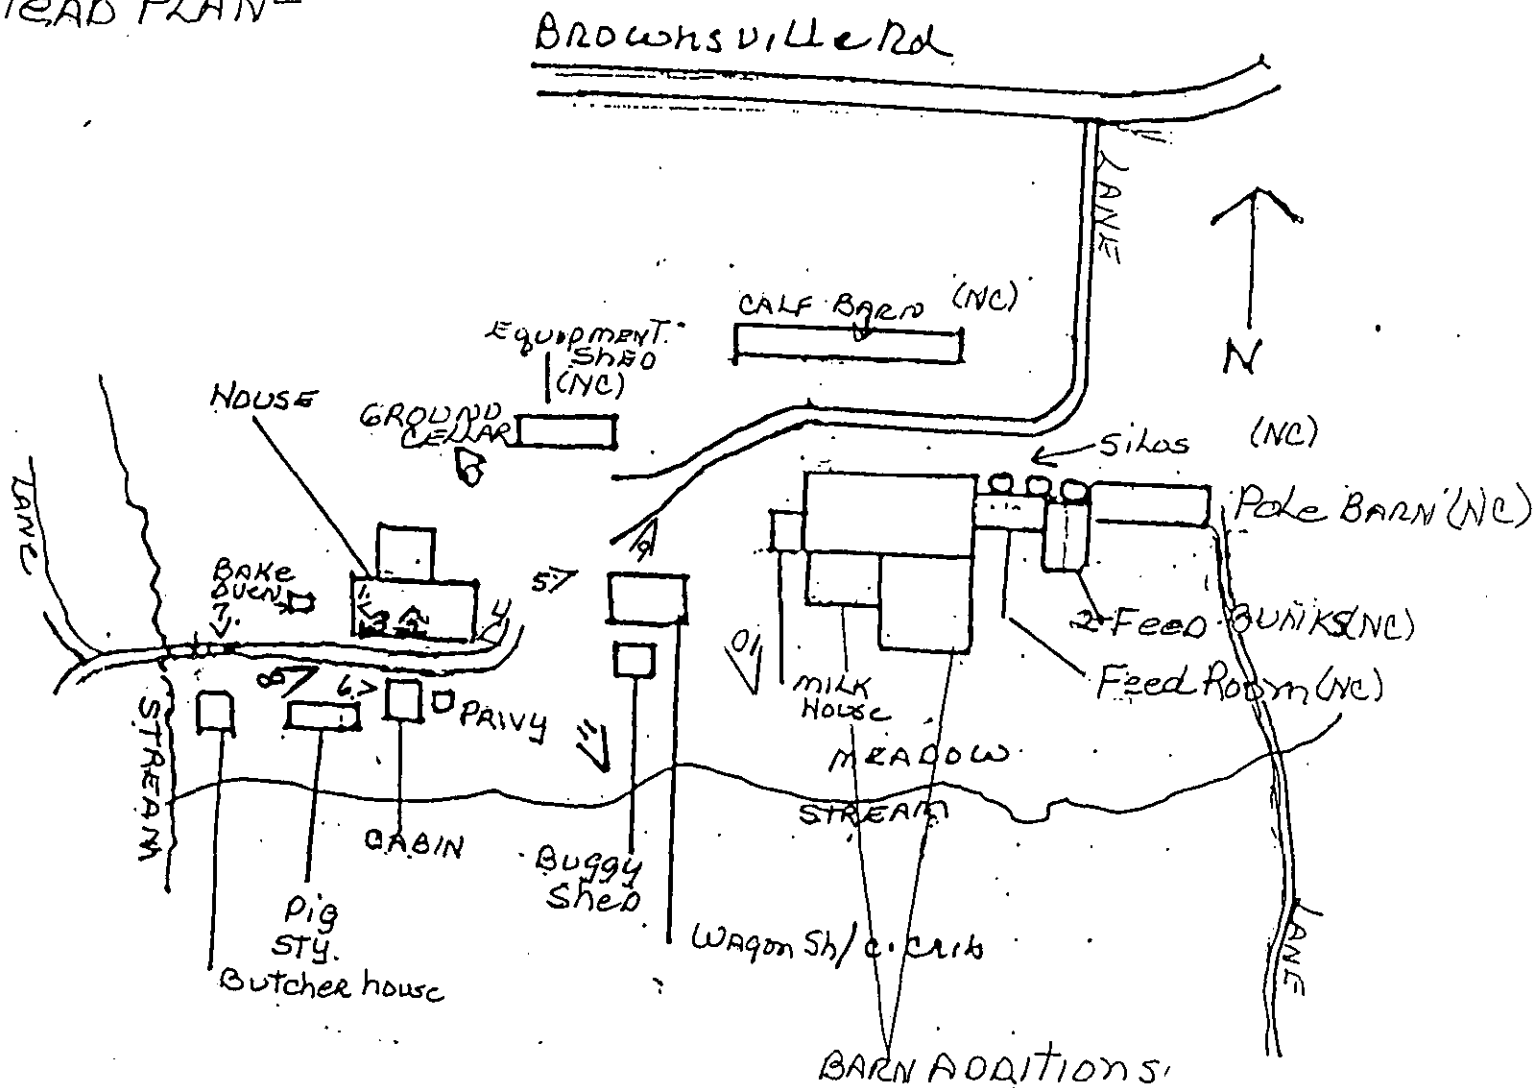 PLAN-
Brownsville Rd
LANE
N
CALF BARN (NC)
EQUIPMENT
SHED
(NC)
HOUSE
GROUND
CELLAR
Silos (NC)
Pole BARN (NC)
LANE
BAKE
OVEN
7.
1.
3
2
4
5.
9
2-Feed BUNKS (NC)
Feed Room (NC)
8
6.
PRIVY
10
11
MILK
House
MEADOW
STREAM
STREAM
CABIN
Buggy
Shed
Pig
STY.
Butcher house
WAgon Sh/c.crib
LANE
BARN ADDITIONS